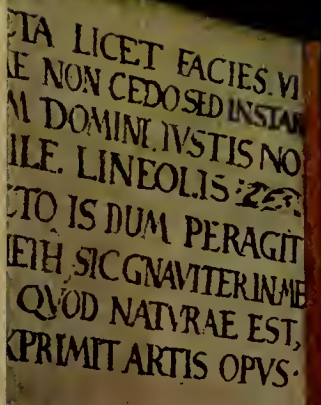 CTA LICET FACIES. VI
E NON CEDO SED INSTAR
M DOMINI. IVSTIS NO
ILE. LINEOLIS
CTO IS DUM PERAGIT
IETH, SIC GNAVITER IN ME
QVOD NATVRAE EST,
XPRIMIT ARTIS OPVS·